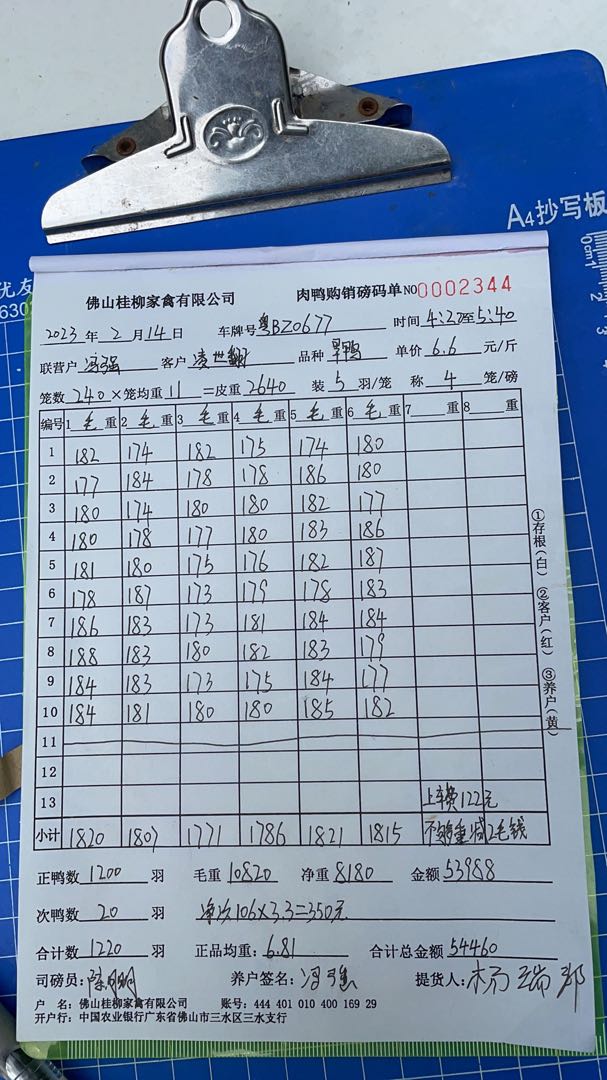 A4抄写板
优友
630
0cm1 2 3 4
佛山桂柳家禽有限公司 肉鸭购销磅码单 NO0002344
2023年2月14日 车牌号粤BZ0677 时间4:20至5:40
联营户冯强 客户凌世 品种 鸭 单价6.6元/斤
笼数240×笼均重11=皮重2640 装5羽/笼 称4笼/磅
编号 1毛重 2毛重 3毛重 4毛重 5毛重 6毛重 7重 8重
1 182 174 182 175 174 180
2 177 184 178 178 186 180
3 180 174 180 180 182 177
4 180 178 177 180 183 186
5 181 180 175 176 182 187
6 178 187 173 179 178 183
7 186 183 173 181 184 184
8 188 183 180 182 183 179
9 184 183 173 175 184 177
10 184 181 180 180 185 182
11
12
13 上车费122元
小计 1820 1807 1771 1786 1821 1815 不够重减2毛钱
正鸭数1200羽 毛重10820 净重8180 金额53988
次鸭数20羽 净次106×3.3=350元
合计数1220羽 正品均重:6.81 合计总金额54460
司磅员: 养户签名:冯强 提货人:杨瑞
户 名:佛山桂柳家禽有限公司 账号:444 401 010 400 169 29
开户行:中国农业银行广东省佛山市三水区三水支行
①存根(白) ②客户(红) ③养户(黄)